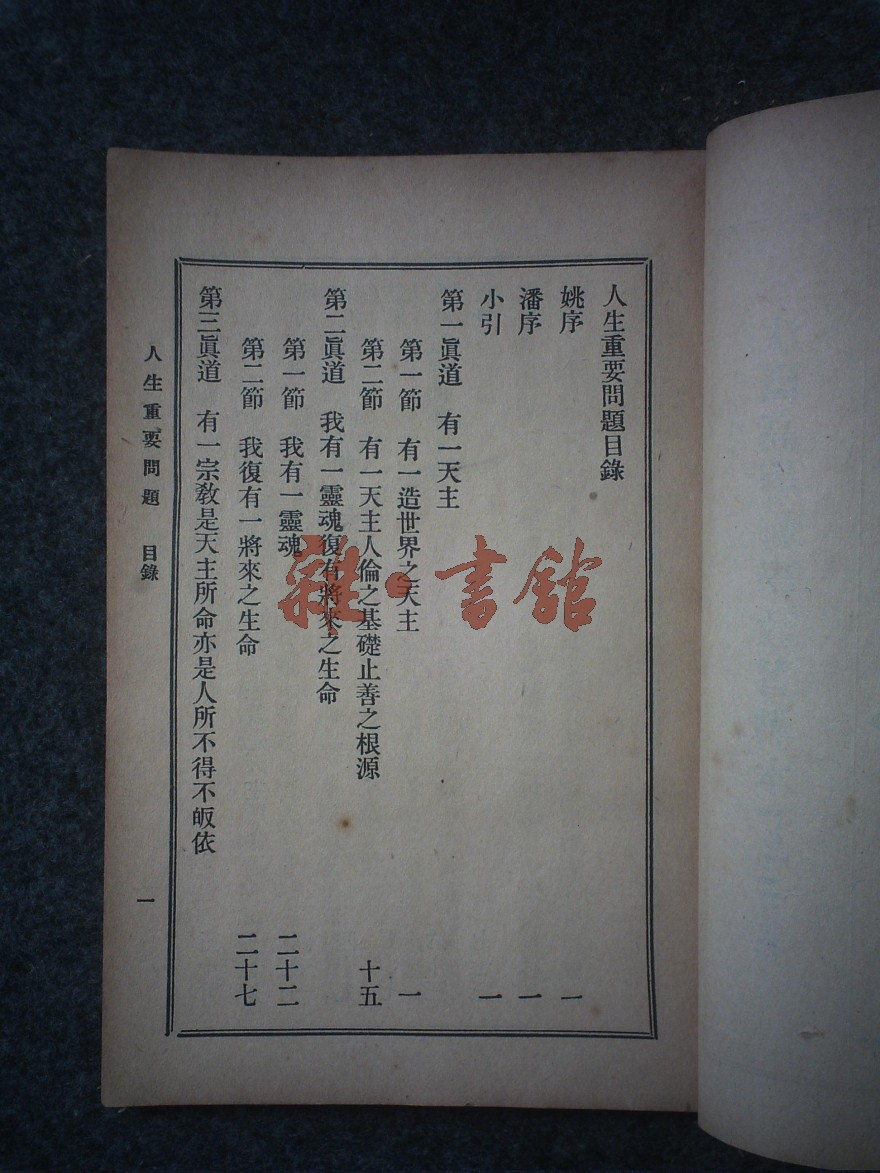 人生重要問題目錄
姚序 一
潘序 一
小引 一
第一眞道 有一天主
第一節 有一造世界之天主 一
第二節 有一天主人倫之基礎止善之根源 十五
第二眞道 我有一靈魂復有將來之生命
第一節 我有一靈魂 二十二
第二節 我復有一將來之生命 二十七
第三眞道 有一宗教是天主所命亦是人所不得不皈依
人生重要問題 目錄 一
雜·書舘